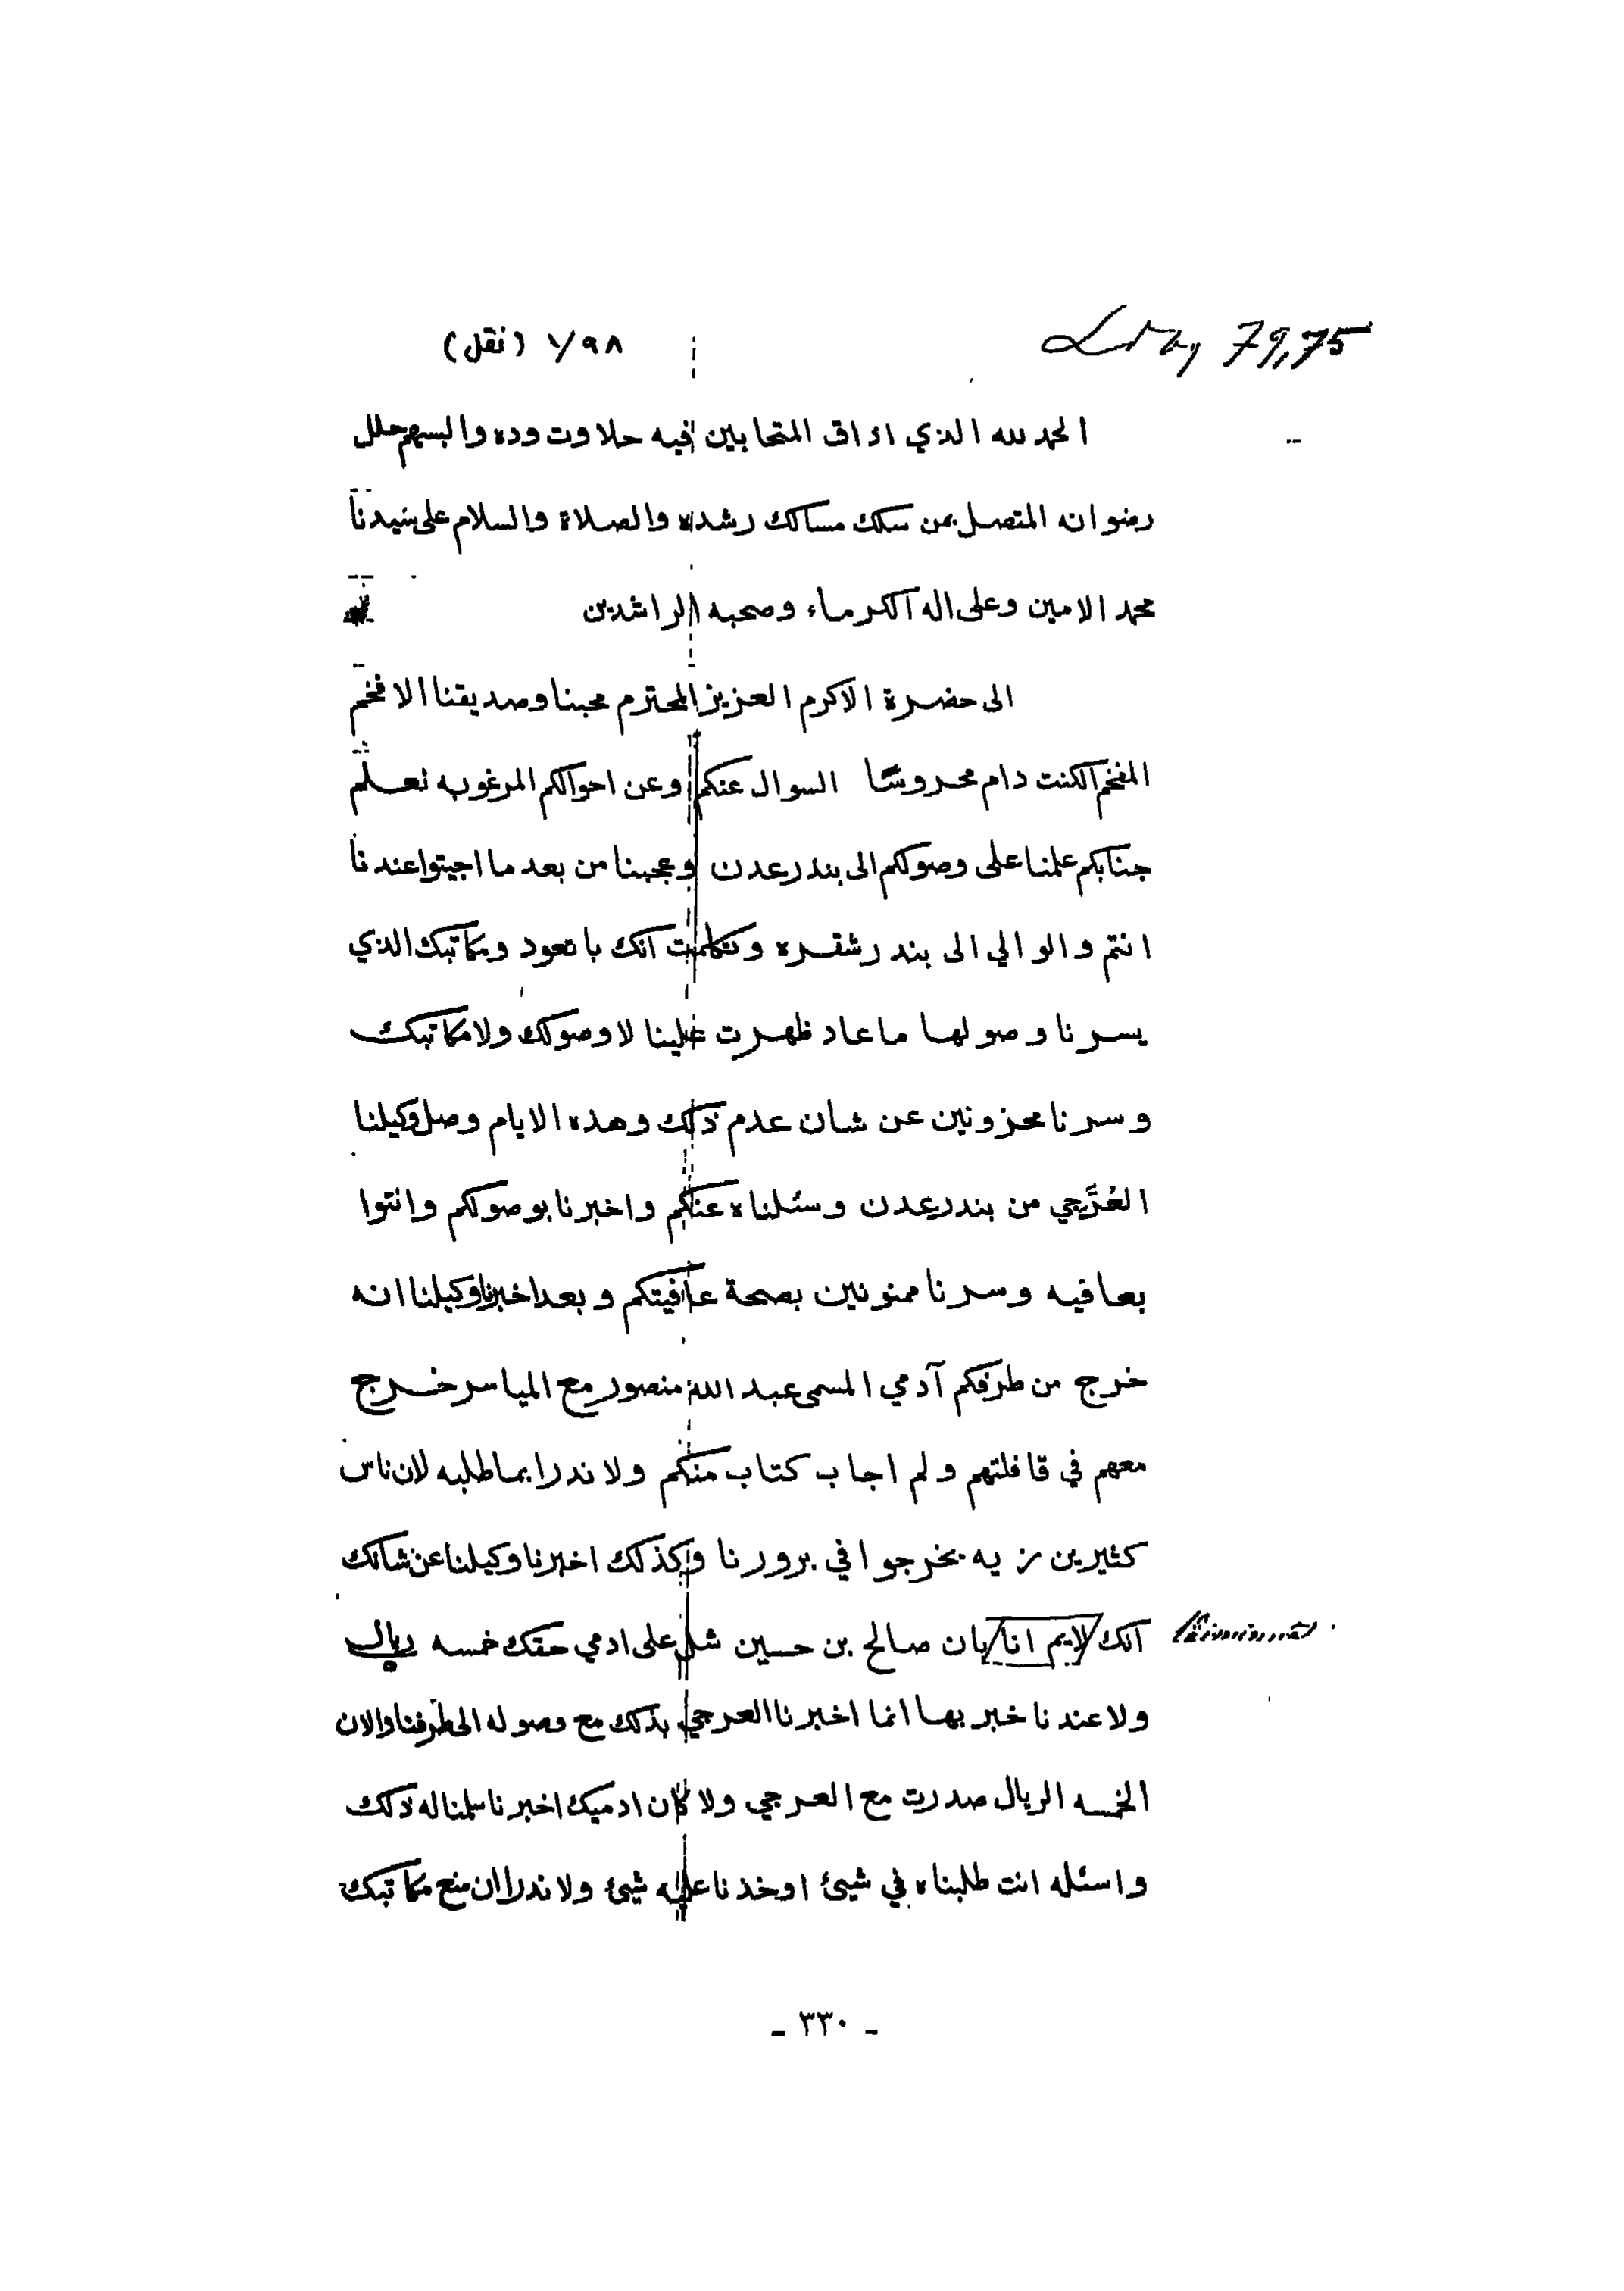 79,75
١/٩٨ (نقل)
الحمد لله الذي اذاق المتحابين فيه حلاوت وده والبسهم حلل
رضوانه المتصل بمن سلك مسالك رشده والصلاة والسلام على سيدنا
محمد الامين وعلى اله الكرماء وصحبه الراشدين
الى حضرة الاكرم العزيز المحترم محبنا وصديقنا الافخم
المفخم الكنت دام محروسًا السوال عنكم وعن احوالكم المرغوبه نعلم
جنابكم علمنا على وصولكم الى بندر عدن وعجبنا من بعد ما اجيتوا عندنا
انتم والوالي الى بندر شقره وتكلمت انك با تعود ومكاتبك الذي
يسرنا وصولها ما عاد ظهرت علينا لا وصولك ولا مكاتبك
وسرنا محزونين عن شان عدم ذلك وهذه الايام وصل وكيلنا
العُرَجي من بندر عدن وسئلناه عنكم واخبرنا بوصولكم وانتوا
بعافيه وسرنا ممنونين بصحة عافيتكم وبعد اخبرنا وكيلنا انه
خرج من طرفكم آدمي المسمى عبد الله منصور مع المياسر خرج
معهم في قافلتهم ولم اجاب كتاب منكم ولا ندرا بما طلبه لان ناس
كثيرين يخرجوا في برورنا وكذلك اخبرنا وكيلنا عن شانك
انك لايم انا بان صالح بن حسين شل على ادمي حقك خمسه ريال
ولا عندنا خبر بها انما اخبرنا العرجي بذلك مع وصوله الى طرفنا والان
الخمسه الريال صدرت مع العرجي ولا كان ادميك اخبرنا سلمنا له ذلك
واسئله انت طلبناه في شيئ اوخذنا عليه شيئ ولا ندرا ان منع مكاتبك
- ٣٣٠ -